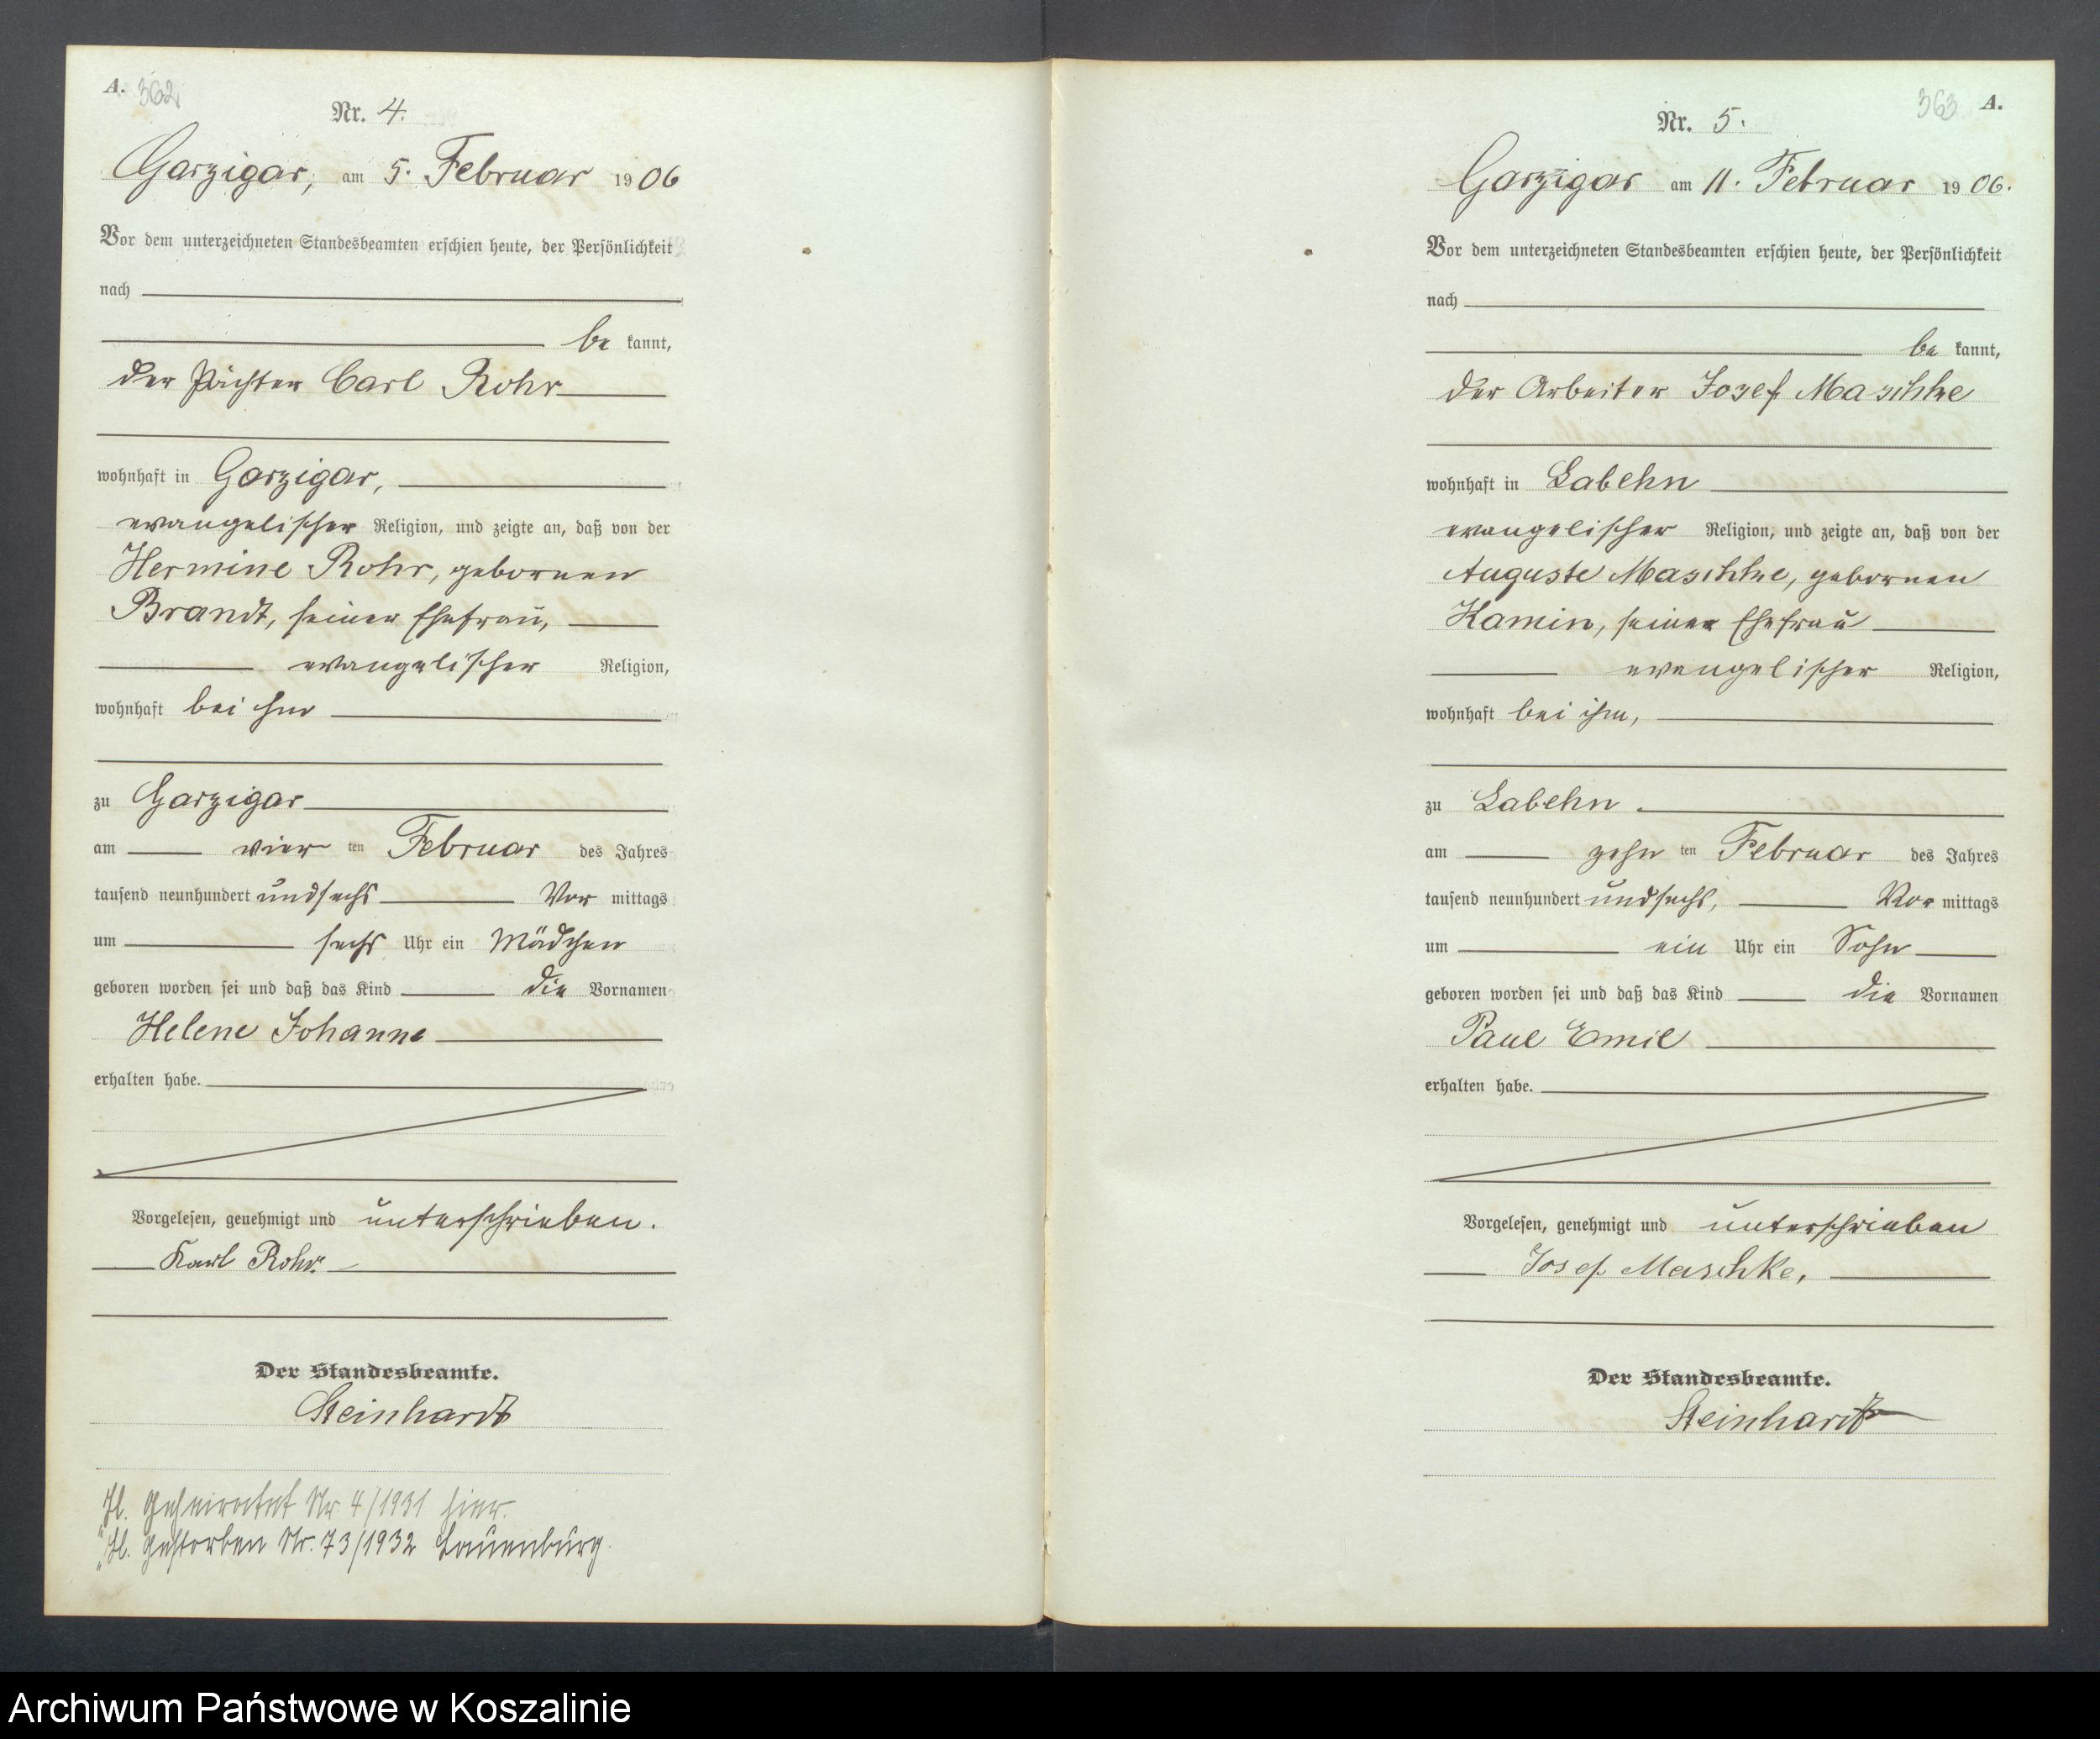 A. 362
Nr. 4.
Garzigar, am 5. Februar 1906
Vor dem unterzeichneten Standesbeamten erschien heute, der Persönlichkeit
nach
be kannt,
der Pächter Carl Rohr
wohnhaft in Garzigar,
evangelischer Religion, und zeigte an, daß von der
Hermine Rohr, geborenen
Brandt, seiner Ehefrau,
evangelischer Religion,
wohnhaft bei ihm
zu Garzigar
am vier ten Februar des Jahres
tausend neunhundert undsechs Vor mittags
um sechs Uhr ein Mädchen
geboren worden sei und daß das Kind die Vornamen
Helene Johanne
erhalten habe.
Vorgelesen, genehmigt und unterschrieben.
Karl Rohr.
Der Standesbeamte.
Steinhardt
geheiratet Nr. 4/1931 hier.
gestorben Nr. 73/1932 Lauenburg.
363 A.
Nr. 5.
Garzigar am 11. Februar 1906.
Vor dem unterzeichneten Standesbeamten erschien heute, der Persönlichkeit
nach
be kannt,
der Arbeiter Josef Maschke
wohnhaft in Labehn
evangelischer Religion, und zeigte an, daß von der
Auguste Maschke, geborenen
Kamin, seiner Ehefrau
evangelischer Religion,
wohnhaft bei ihm,
zu Labehn.
am zehn ten Februar des Jahres
tausend neunhundert undsechs, Vor mittags
um ein Uhr ein Sohn
geboren worden sei und daß das Kind die Vornamen
Paul Emil
erhalten habe.
Vorgelesen, genehmigt und unterschrieben
Josef Maschke,
Der Standesbeamte.
Steinhardt
Archiwum Państwowe w Koszalinie